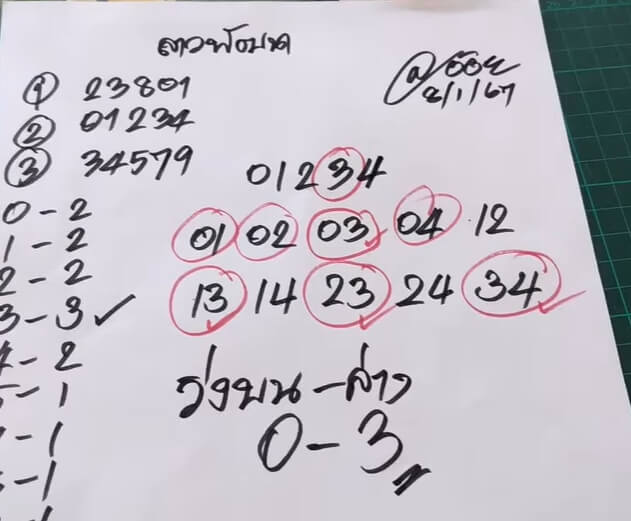 ลาวพัฒนา
@อ๊อย
8/1/67
① 23801
② 01234
③ 34579
01234
0-2
1-2
2-2
3-3✓
4-2
5-1
-1
-1
01 02 03 04 12
13 14 23 24 34
วิ่งบน-ล่าง
0-3